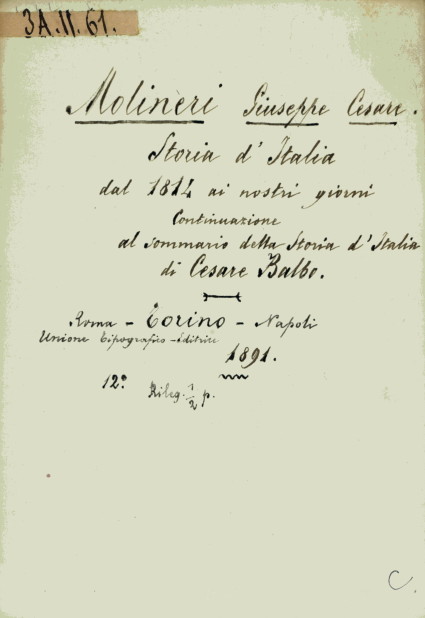 3A.11.61.
Molineri Giuseppe Cesare.
Storia d'Italia
dal 1814 ai nostri giorni
Continuazione
al sommario della Storia d'Italia
di Cesare Balbo.
Roma - Torino - Napoli
Unione Tipografico-Editrice
1891.
12º
Rileg. 1/2 p.
C.